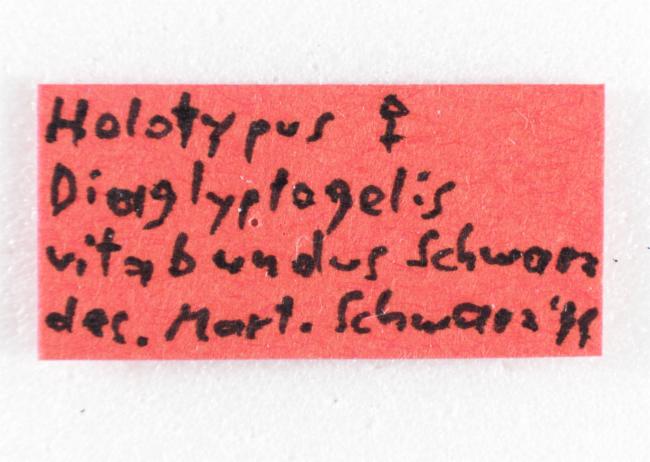 Holotypus ♀
Diaglyptogelis
vitabundus Schwarz
des. Mart. Schwarz '99